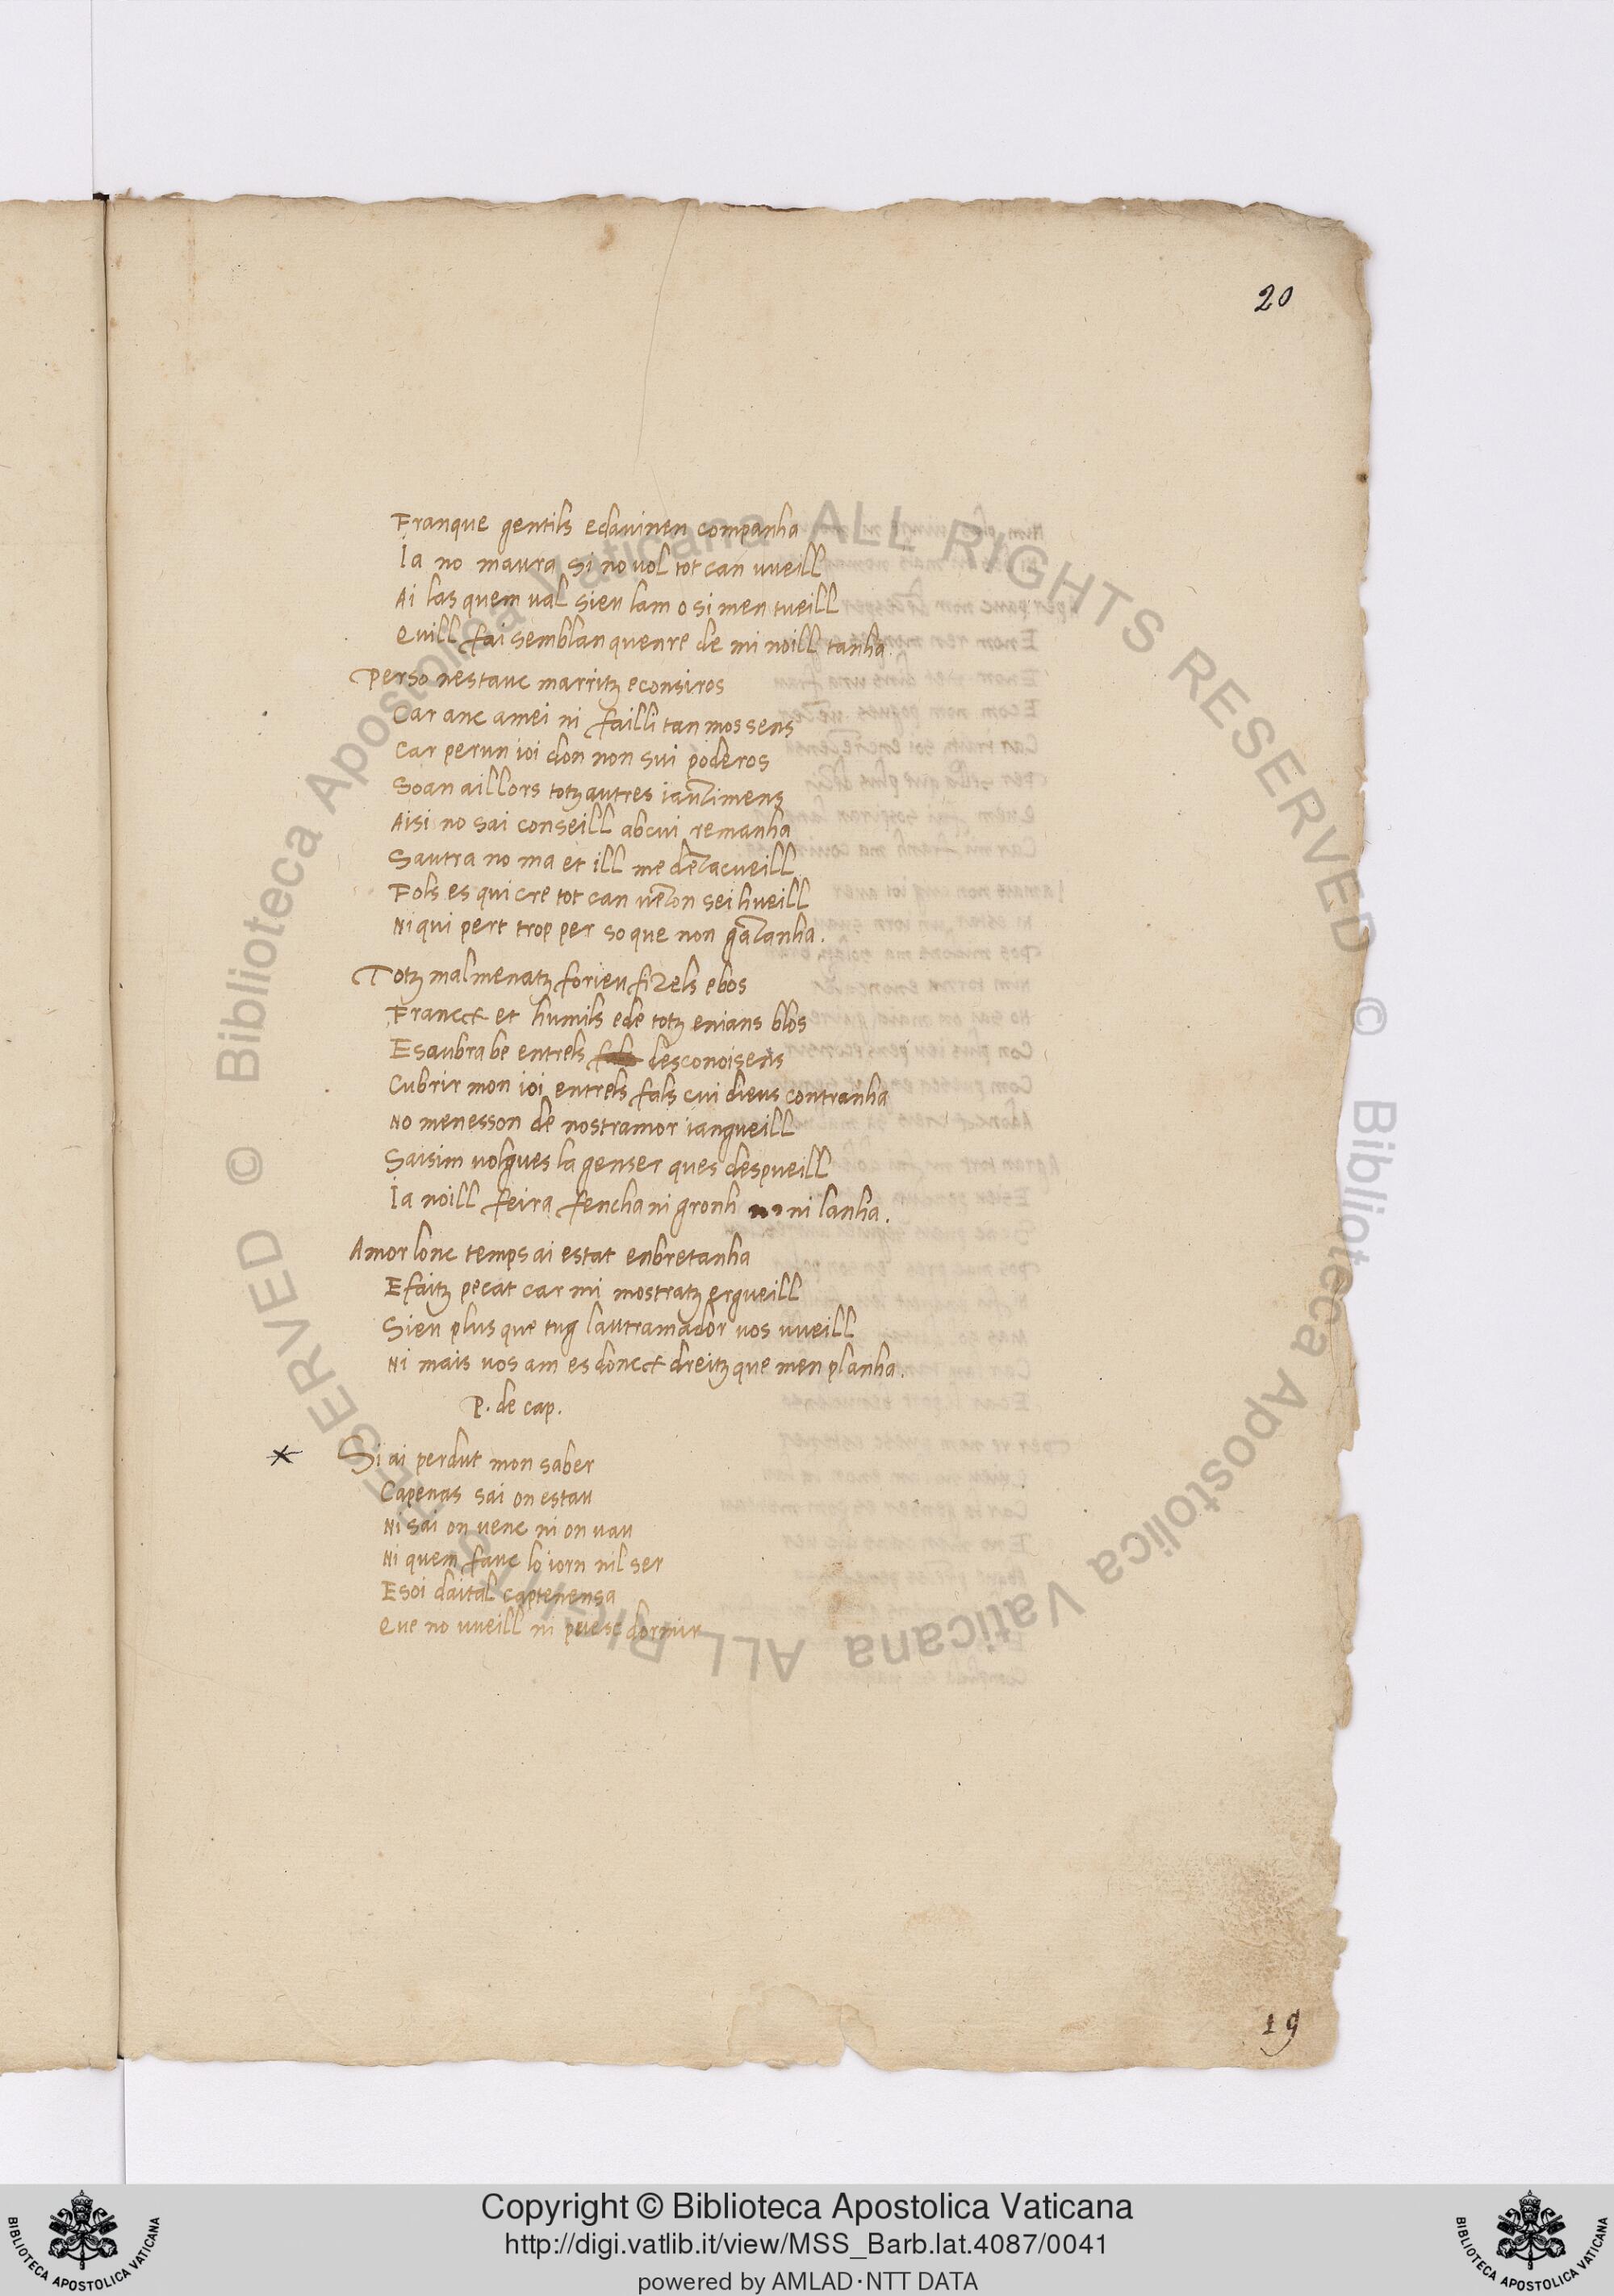 20
Franque gentils edauinen companha
Ia no maura si no uol tot can uueill
Ai las quem ual sieu lam o si men tueill
Quill fai semblan quenre de mi noill tanha.
Perso nestauc marritz econsiros
Car anc amei ni failli tan mos sens
Car perun ioi don non sui poderos
Soan aillors totz autres iauzimens
Aisi no sai conseill abcui remanha
Sautra no ma et ill me dezacueill
Fols es qui cre tot can uezon sei hueill
Ni qui pert trop per so que non gazanha.
Totz malmenatz forieu fizels ebos
Franck et humils ede totz enians blos
Esaubra be entrels fals desconoisens
Cubrir mon ioi entrels fals cui dieus contranha
No menesson de nostramor iangueill
Saisim uolgues la genser ques despueill
Ia noill feira fencha ni gronh ni lanha.
Amor lonc temps ai estat enbretanha
E faitz pecat car mi mostratz ergueill
Sieu plus que tug lautramador uos uueill
Ni mais uos am es donck dreitz que men planha.
P. de cap.
* Si ai perdut mon saber
Capenas sai on estau
Ni sai on uenc ni on uau
Ni quem fauc lo iorn nil ser
Esoi daital captenensa
Que no uueill ni puesc dormir
19
© Biblioteca Apostolica Vaticana ALL RIGHTS RESERVED © Biblioteca Apostolica Vaticana ALL RIGHTS RESERVED
Copyright © Biblioteca Apostolica Vaticana
http://digi.vatlib.it/view/MSS_Barb.lat.4087/0041
powered by AMLAD·NTT DATA
BIBLIOTECA APOSTOLICA VATICANA
BIBLIOTECA APOSTOLICA VATICANA